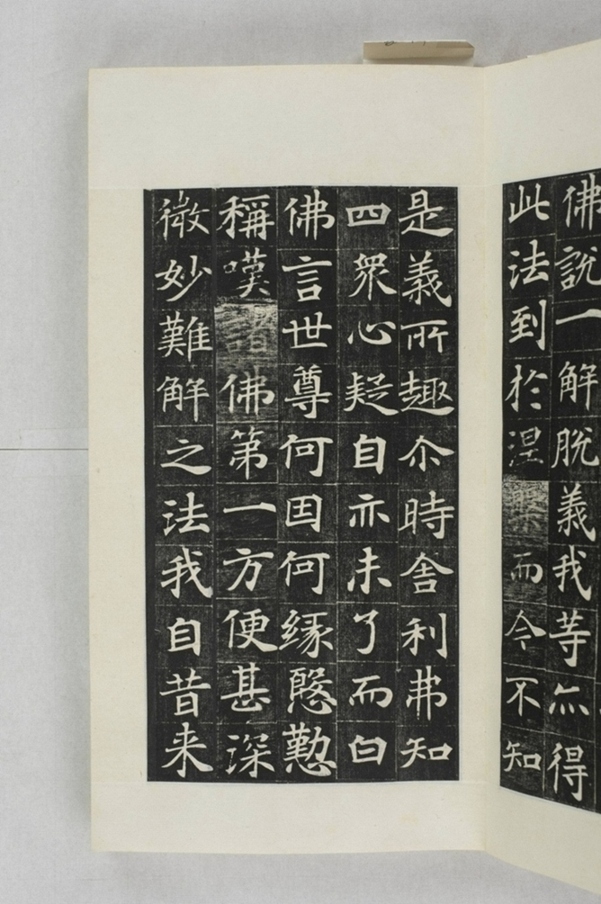 佛說一解脫義我等亦得
此法到於涅槃而今不知
是義所趣尒時舍利弗知
四衆心疑自亦未了而白
佛言世尊何因何緣慇懃
稱嘆諸佛第一方便甚深
微妙難解之法我自昔来